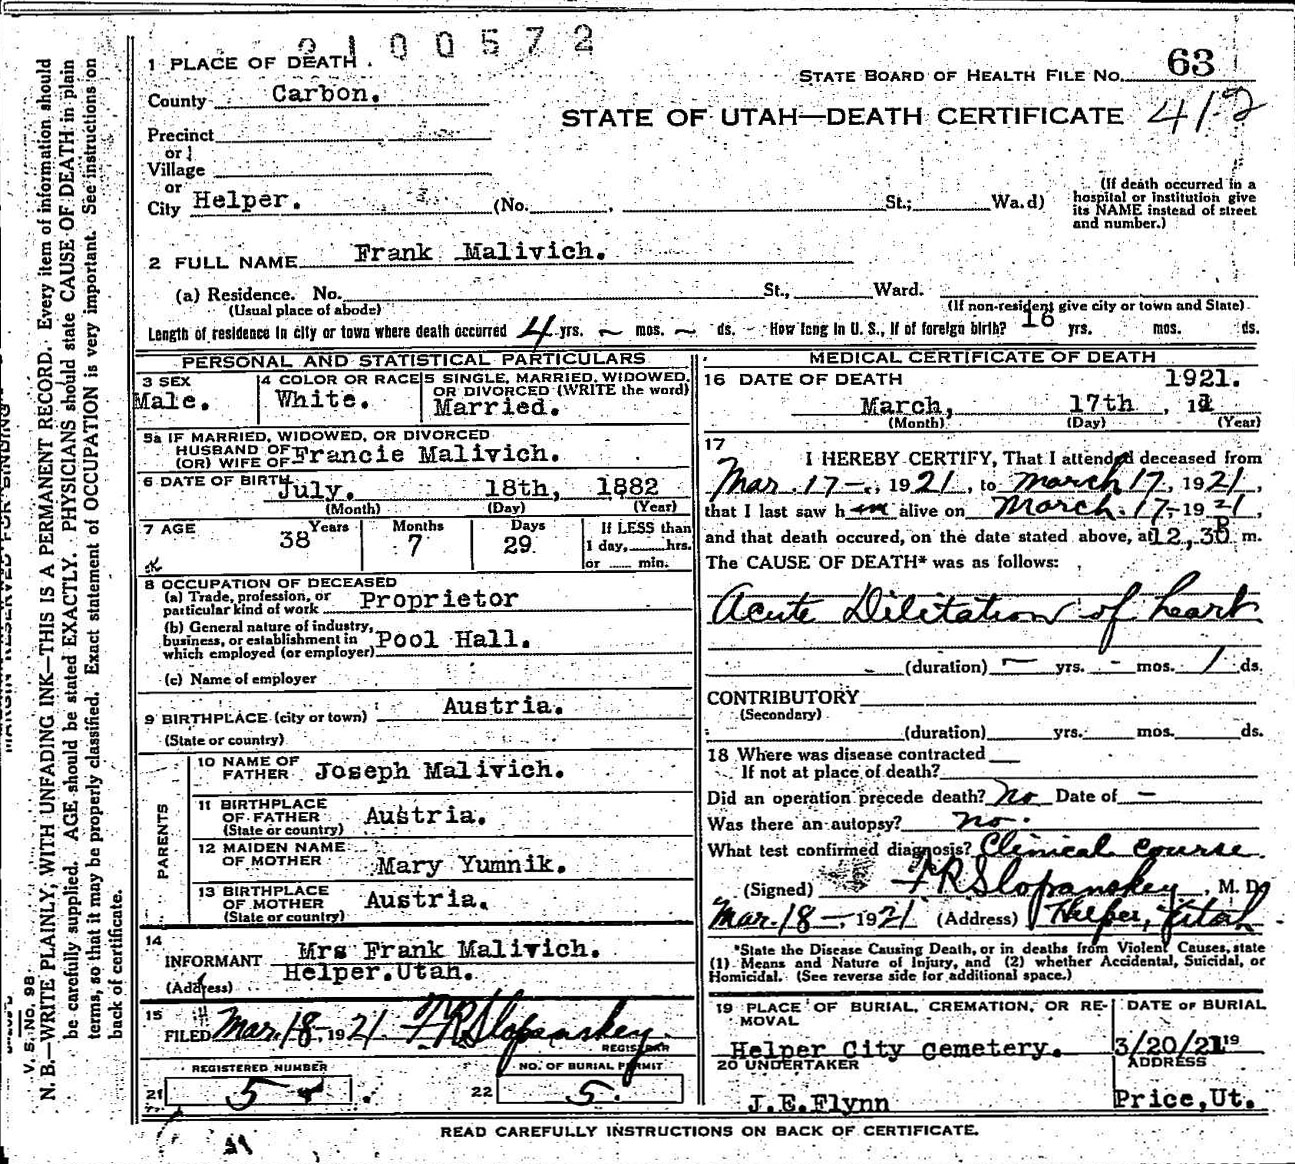 2100572
1 PLACE OF DEATH.
STATE BOARD OF HEALTH FILE No. 63
County Carbon.
STATE OF UTAH—DEATH CERTIFICATE 412
Precinct
or
Village
or
City Helper. (No. , St.; Ward)
(If death occurred in a
hospital or institution give
its NAME instead of street
and number.)
2 FULL NAME Frank Malivich.
(a) Residence. No. St., Ward.
(Usual place of abode) (If non-resident give city or town and State)
Length of residence in city or town where death occurred 4 yrs. ~ mos. ~ ds. How long in U. S., if of foreign birth? 16 yrs. mos. ds.
PERSONAL AND STATISTICAL PARTICULARS
3 SEX 4 COLOR OR RACE 5 SINGLE, MARRIED, WIDOWED,
OR DIVORCED (WRITE the word)
Male. White. Married.
5a IF MARRIED, WIDOWED, OR DIVORCED
HUSBAND OF
(OR) WIFE OF Francie Malivich.
6 DATE OF BIRTH July. 18th, 1882
(Month) (Day) (Year)
7 AGE Years Months Days If LESS than
38 7 29 1 day, hrs.
or min.
8 OCCUPATION OF DECEASED
(a) Trade, profession, or
particular kind of work Proprietor
(b) General nature of industry,
business, or establishment in
which employed (or employer) Pool Hall.
(c) Name of employer
9 BIRTHPLACE (city or town) Austria.
(State or country)
PARENTS
10 NAME OF
FATHER Joseph Malivich.
11 BIRTHPLACE
OF FATHER Austria.
(State or country)
12 MAIDEN NAME
OF MOTHER Mary Yumnik.
13 BIRTHPLACE
OF MOTHER Austria.
(State or country)
14
INFORMANT Mrs Frank Malivich.
(Address) Helper.Utah.
15
FILED Mar. 18-, 1921. F R Slopanskey.
REGISTRAR
REGISTERED NUMBER NO. OF BURIAL PERMIT
21 5 22 5.
MEDICAL CERTIFICATE OF DEATH
16 DATE OF DEATH 1921.
March, 17th , 19
(Month) (Day) (Year)
17
I HEREBY CERTIFY, That I attended deceased from
Mar. 17-, 1921, to march 17, 1921,
that I last saw him alive on March. 17-1921,
and that death occured, on the date stated above, at 12,30 P m.
The CAUSE OF DEATH* was as follows:
Acute Dilitation of heart
(duration) — yrs. - mos. 1 ds.
CONTRIBUTORY
(Secondary)
(duration) yrs. mos. ds.
18 Where was disease contracted
If not at place of death?
Did an operation precede death? No Date of —
Was there an autopsy? no.
What test confirmed diagnosis? Clinical course.
(Signed) F R Slopanskey, M. D.
Mar. 18-, 1921 (Address) Helper, Utah
*State the Disease Causing Death, or in deaths from Violent Causes, state
(1) Means and Nature of Injury, and (2) whether Accidental, Suicidal, or
Homicidal. (See reverse side for additional space.)
19 PLACE OF BURIAL, CREMATION, OR RE-
MOVAL
DATE OF BURIAL
Helper City Cemetery. 3/20/21 19
20 UNDERTAKER ADDRESS
J.E.Flynn Price,Ut.
READ CAREFULLY INSTRUCTIONS ON BACK OF CERTIFICATE.
MARGIN RESERVED FOR BINDING
V. S. NO. 98
N. B.—WRITE PLAINLY, WITH UNFADING INK—THIS IS A PERMANENT RECORD. Every item of information should
be carefully supplied. AGE should be stated EXACTLY. PHYSICIANS should state CAUSE OF DEATH in plain
terms, so that it may be properly classified. Exact statement of OCCUPATION is very important. See instructions on
back of certificate.